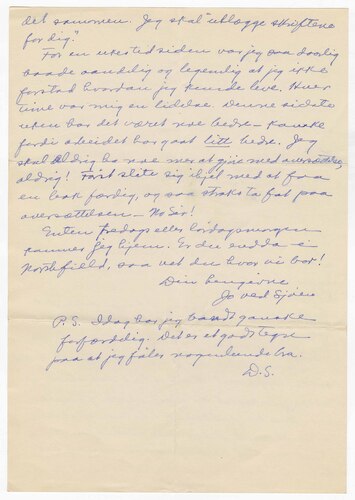 det sammen. Jeg skal "utlægge skriftene
for dig."
For en ukes tid siden var jeg saa daarlig
baade aandelig og legemlig at jeg ikke
forstod hvordan jeg kunde leve. Hver
time var mig en lidelse. Denne sidste
uken har det været noe bedre - kanske
fordi arbeidet har gaat litt bedre. Jeg
skal aldrig ha noe mer at gjøre med oversættelse,
aldrig! Først slite sig ihjel med at faa
en bok færdig, og saa straks ta fat paa
oversættelsen - No Sir!
Enten fredags eller lørdagsmorgen
kommer jeg hjem. Er du endda i
Northfield, saa vet du hvor vi bor!
Din hengivne
Jo ved Sjøen
P.S. Idag har jeg bandt ganske
forfærdelig. Det er et godt tegn
paa at jeg føler nogenlunde bra.
D.S.